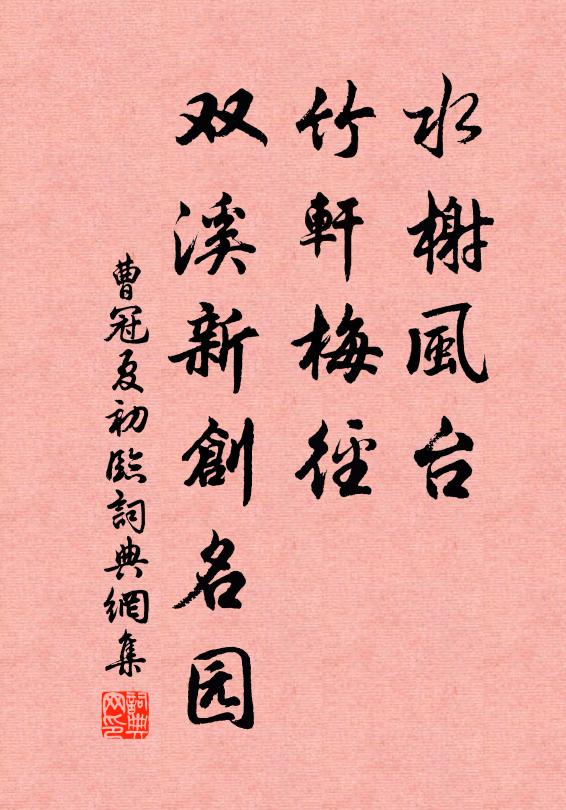 水榭風台
竹軒梅徑
双溪新創名园
曹冠夏初臨詞典網集
詞典网印